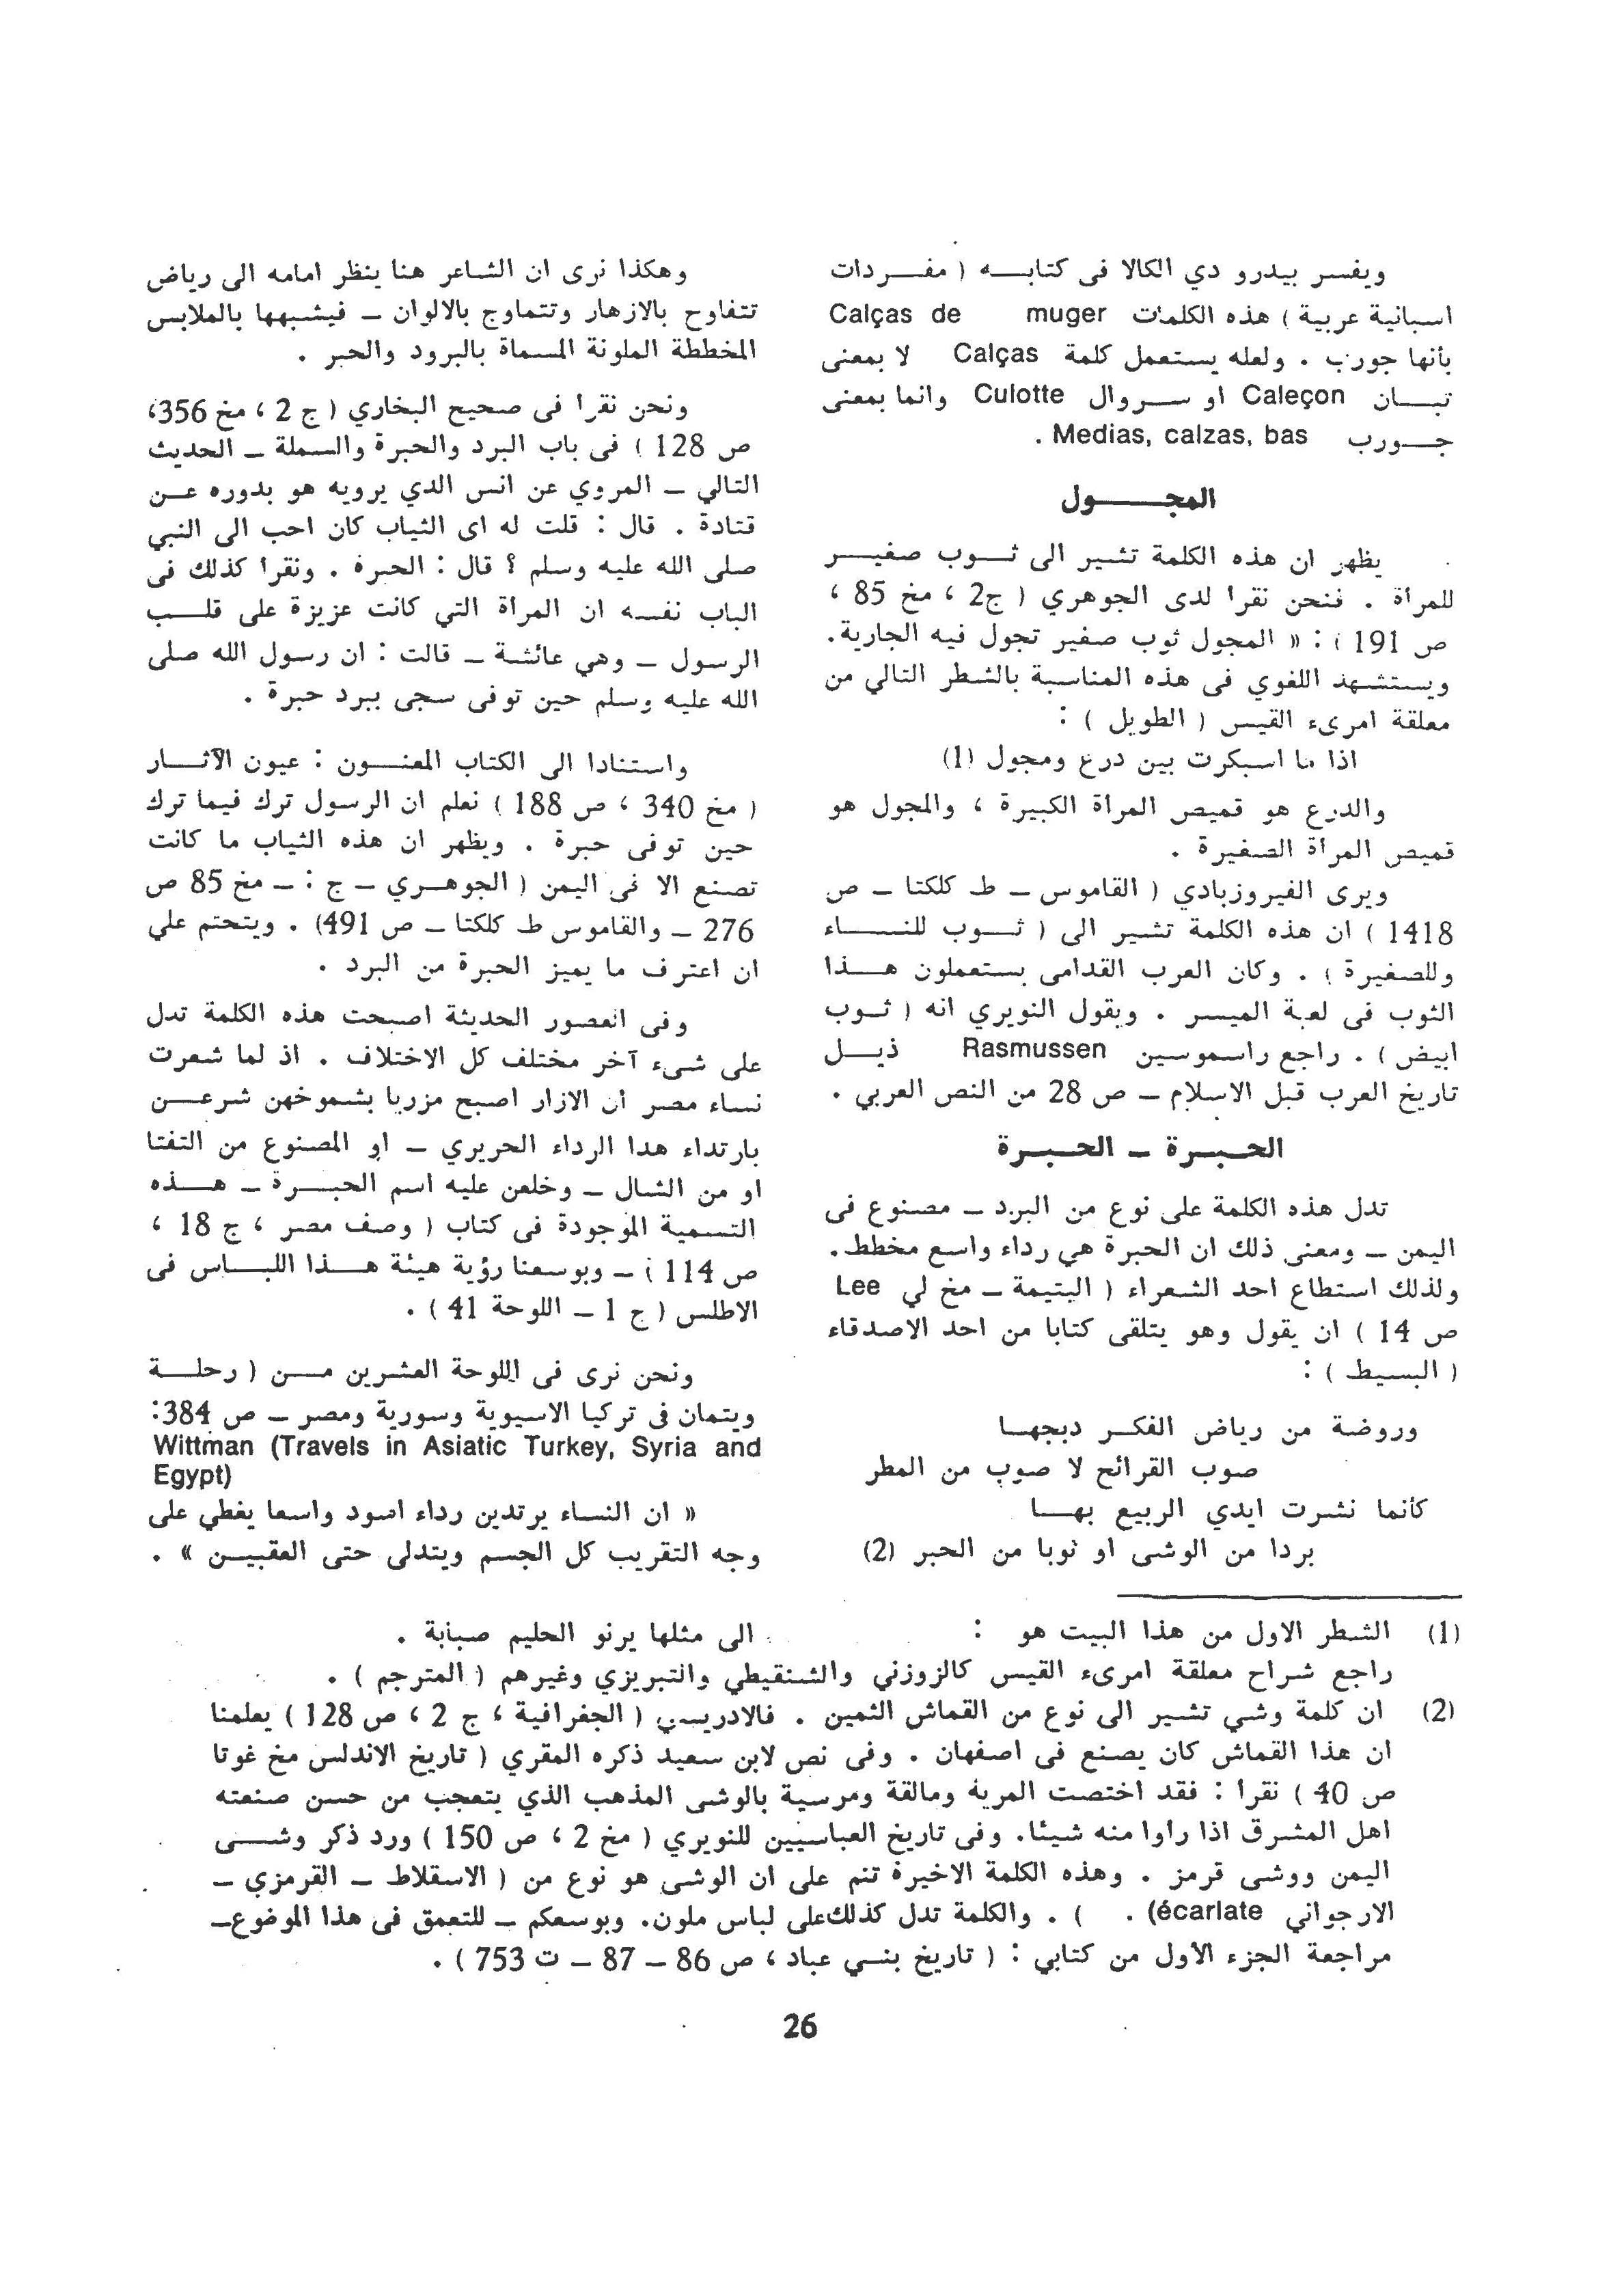 ويفسر بيدرو دي الكالا فى كتابه ( مفردات
اسبانية عربية ) هذه الكلمات Calças de muger
بأنها جورب . ولعله يستعمل كلمة Calças لا بمعنى
تبان Caleçon او سروال Culotte وانما بمعنى
جورب Medias, calzas, bas .
المجول
يظهر ان هذه الكلمة تشير الى ثوب صغير
للمرأة . فنحن نقرا لدى الجوهري ( ج2 ، مخ 85 ،
ص 191 ) : « المجول ثوب صغير تجول فيه الجارية.
ويستشهد اللغوي فى هذه المناسبة بالشطر التالي من
معلقة امرىء القيس ( الطويل ) :
اذا ما اسبكرت بين درع ومجول (1)
والدرع هو قميص المرأة الكبيرة ، والمجول هو
قميص المرأة الصغيرة .
ويرى الفيروزبادي ( القاموس – ط كلكتا – ص
1418 ) ان هذه الكلمة تشير الى ( ثوب للنساء
وللصغيرة ) . وكان العرب القدامى يستعملون هذا
الثوب فى لعبة الميسر . ويقول النويري انه ( ثوب
ابيض ) . راجع راسموسين Rasmussen ذيل
تاريخ العرب قبل الاسلام – ص 28 من النص العربي .
الحبرة – الحبرة
تدل هذه الكلمة على نوع من البرد – مصنوع فى
اليمن – ومعنى ذلك ان الحبرة هي رداء واسع مخطط.
ولذلك استطاع احد الشعراء ( اليتيمة – مخ لي Lee
ص 14 ) ان يقول وهو يتلقى كتابا من احد الاصدقاء
( البسيط ) :
وروضة من رياض الفكر دبجها
صوب القرائح لا صوب من المطر
كأنما نشرت ايدي الربيع بها
بردا من الوشى او ثوبا من الحبر (2)
وهكذا نرى ان الشاعر هنا ينظر امامه الى رياض
تتفاوح بالازهار وتتماوج بالالوان – فيشبهها بالملابس
المخططة الملونة المسماة بالبرود والحبر .
ونحن نقرا فى صحيح البخاري ( ج 2 ، مخ 356،
ص 128 ) فى باب البرد والحبرة والسملة – الحديث
التالي – المروي عن انس الدي يرويه هو بدوره عن
قتادة . قال : قلت له اى الثياب كان احب الى النبي
صلى الله عليه وسلم ؟ قال : الحبرة . ونقرا كذلك فى
الباب نفسه ان المرأة التي كانت عزيزة على قلب
الرسول – وهي عائشة – قالت : ان رسول الله صلى
الله عليه وسلم حين توفى سجى ببرد حبرة .
واستنادا الى الكتاب المعنون : عيون الآثار
( مخ 340 ، ص 188 ) نعلم ان الرسول ترك فيما ترك
حين توفى حبرة . ويظهر ان هذه الثياب ما كانت
تصنع الا فى اليمن ( الجوهري – ج : – مخ 85 ص
276 – والقاموس ط كلكتا – ص 491) . ويتحتم علي
ان اعترف ما يميز الحبرة من البرد .
وفى العصور الحديثة اصبحت هذه الكلمة تدل
على شىء آخر مختلف كل الاختلاف . اذ لما شعرت
نساء مصر ان الازار اصبح مزريا بشموخهن شرعن
بارتداء هدا الرداء الحريري – او المصنوع من التفتا
او من الشال – وخلعن عليه اسم الحبرة – هذه
التسمية الموجودة فى كتاب ( وصف مصر ، ج 18 ،
ص 114 ) – وبوسعنا رؤية هيئة هذا اللباس فى
الاطلس ( ج 1 – اللوحة 41 ) .
ونحن نرى فى اللوحة العشرين من ( رحلة
ويتمان فى تركيا الاسيوية وسورية ومصر – ص 384:
Wittman (Travels in Asiatic Turkey, Syria and
Egypt)
« ان النساء يرتدين رداء اسود واسعا يغطي على
وجه التقريب كل الجسم ويتدلى حتى العقبين » .
(1) الشطر الاول من هذا البيت هو : الى مثلها يرنو الحليم صبابة .
راجع شراح معلقة امرىء القيس كالزوزني والشنقيطي والتبريزي وغيرهم ( المترجم ) .
(2) ان كلمة وشي تشير الى نوع من القماش الثمين . فالادريسي ( الجغرافية ، ج 2 ، ص 128 ) يعلمنا
ان هذا القماش كان يصنع فى اصفهان . وفى نص لابن سعيد ذكره المقري ( تاريخ الاندلس مخ غوتا
ص 40 ) نقرا : فقد اختصت المرية ومالقة ومرسية بالوشى المذهب الذي يتعجب من حسن صنعته
اهل المشرق اذا راوا منه شيئا. وفى تاريخ العباسيين للنويري ( مخ 2 ، ص 150 ) ورد ذكر وشى
اليمن ووشى قرمز . وهذه الكلمة الاخيرة تنم على ان الوشى هو نوع من ( الاسقلاط – القرمزي –
الارجواني écarlate) . ) . والكلمة تدل كذلك على لباس ملون. وبوسعكم – للتعمق فى هذا الموضوع–
مراجعة الجزء الأول من كتابي : ( تاريخ بني عباد ، ص 86 – 87 – ت 753 ) .
26